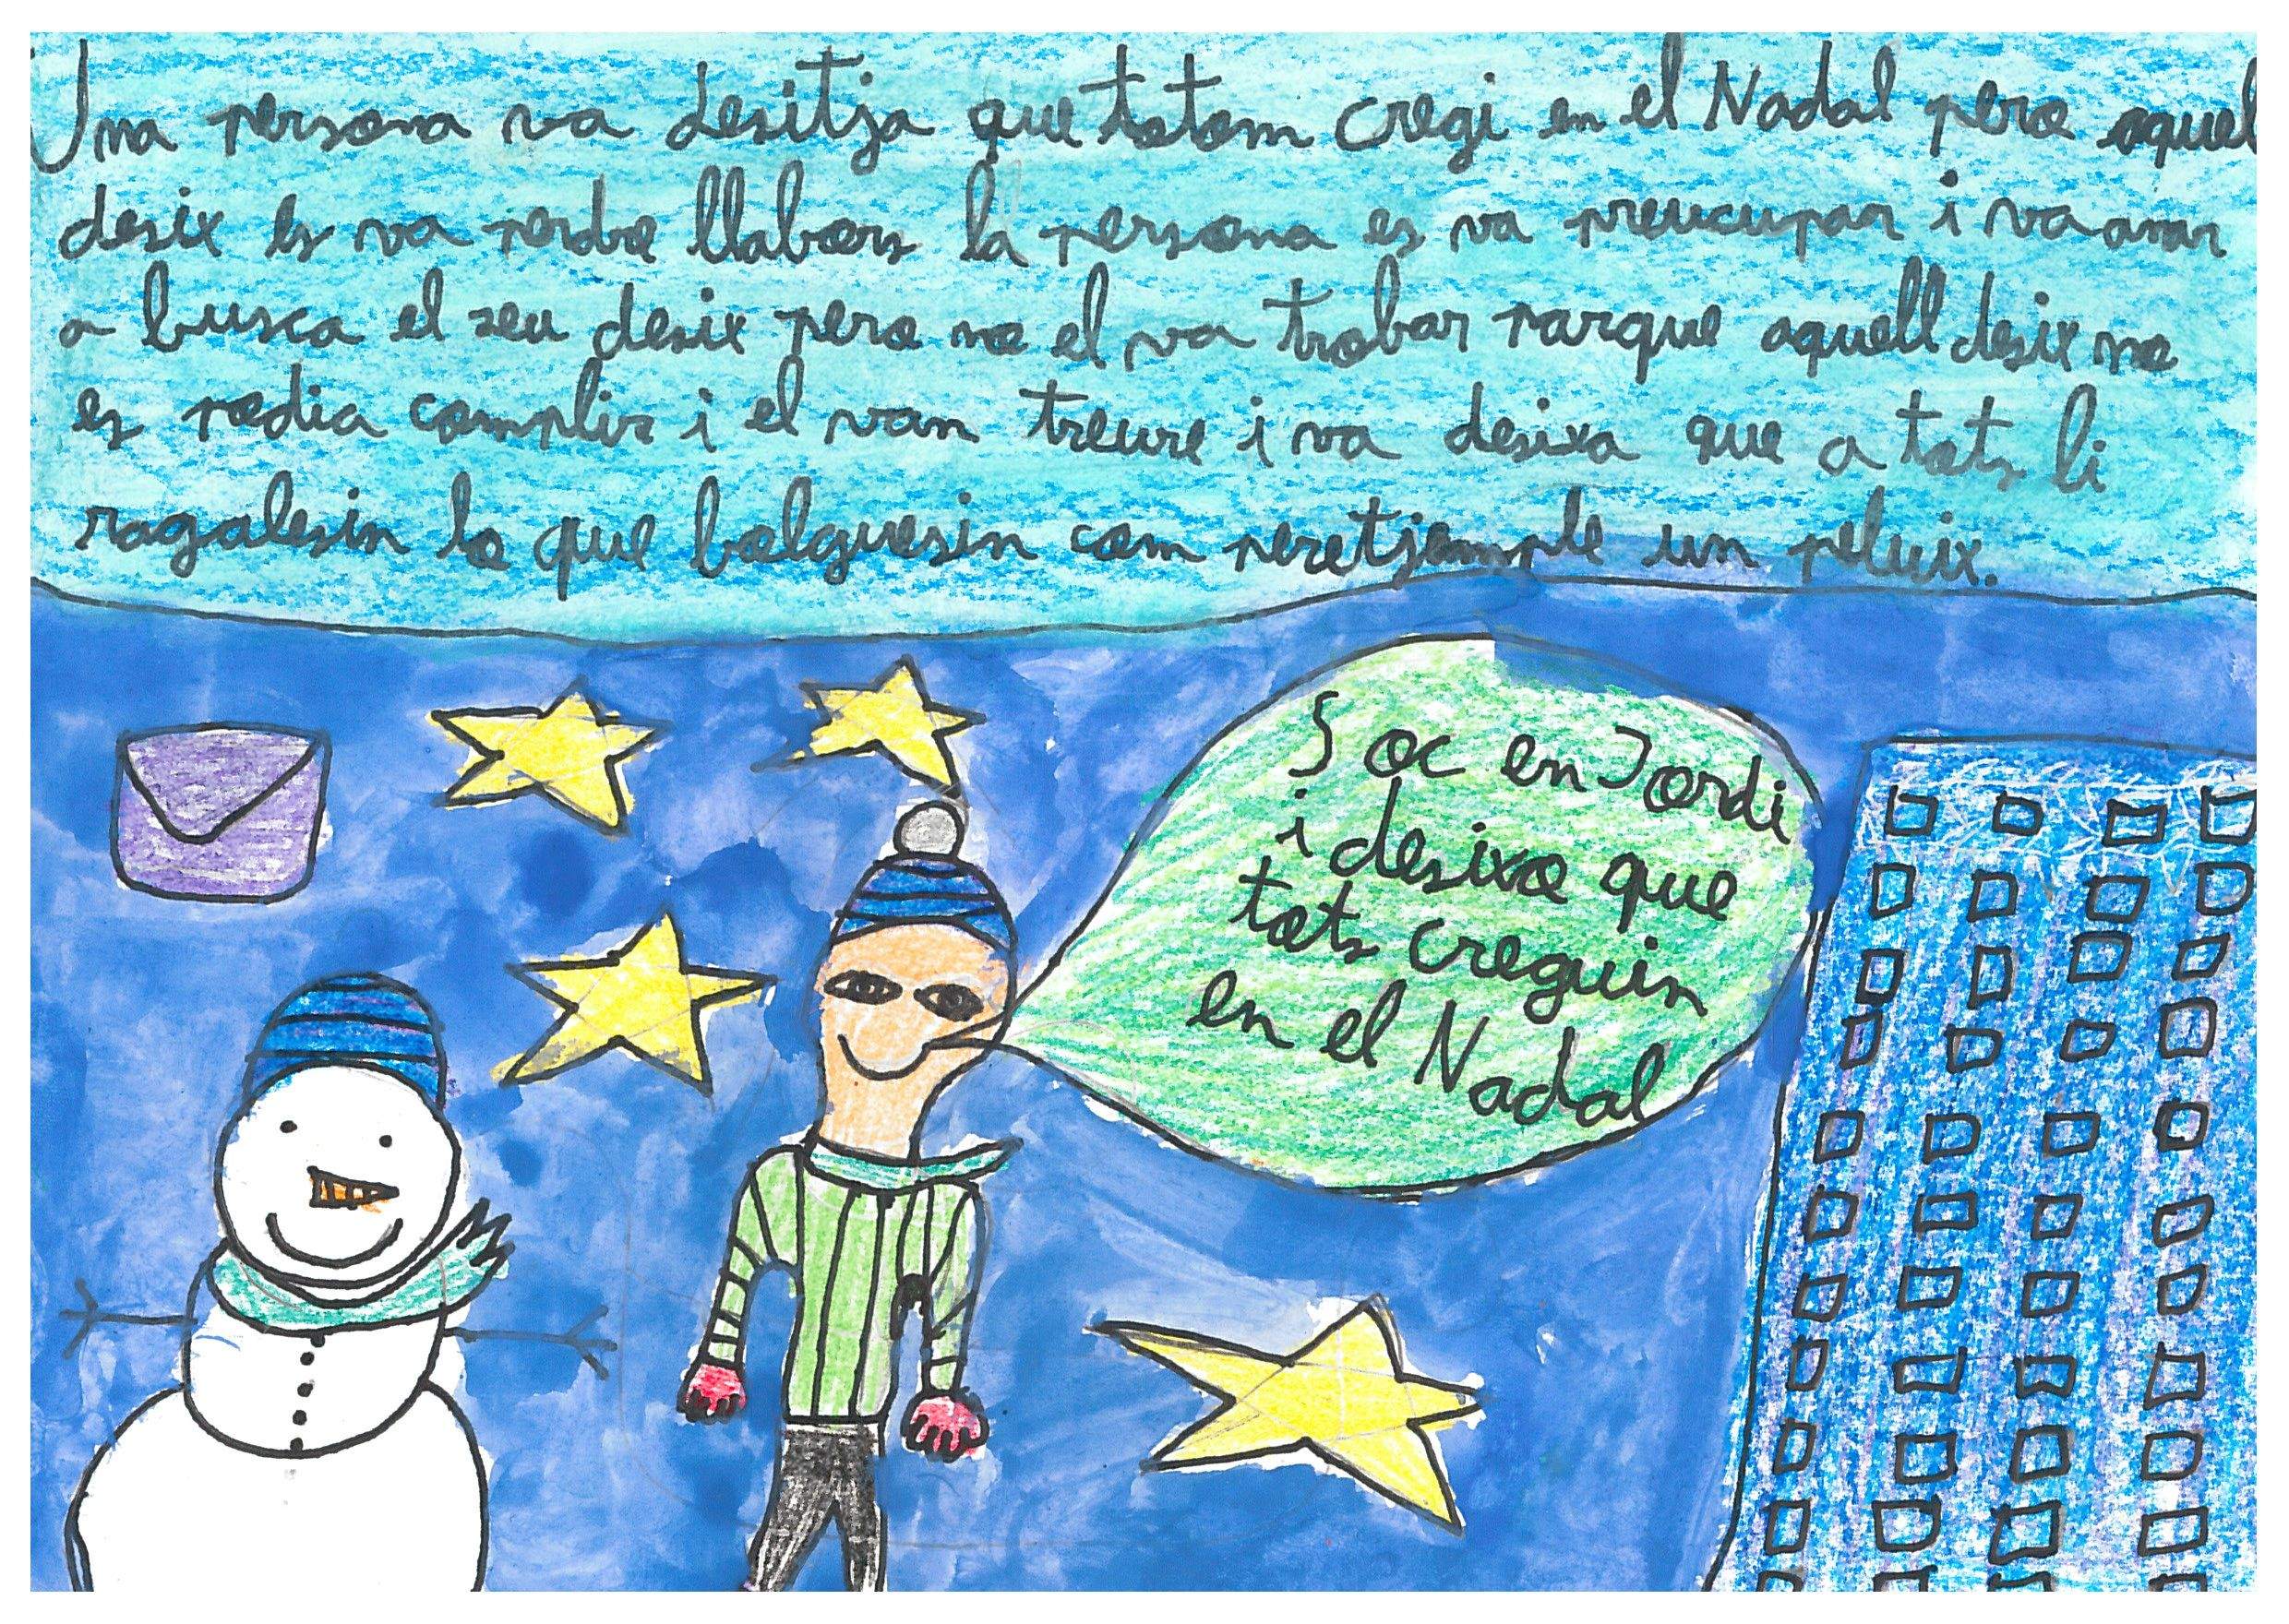 Una persona va desitja que totom cregi en el Nadal pero aquel
desix es va perdre llabors la persona es va preucupar i va anar
a busca el seu desix pero no el va trobar parque aquell desix no
es podia complir i el van treure i va desixa que a tots li
ragalesin lo que bolguesin com peretjemple un peluix.
Soc en Jordi
i desixo que
tots creguin
en el Nadal